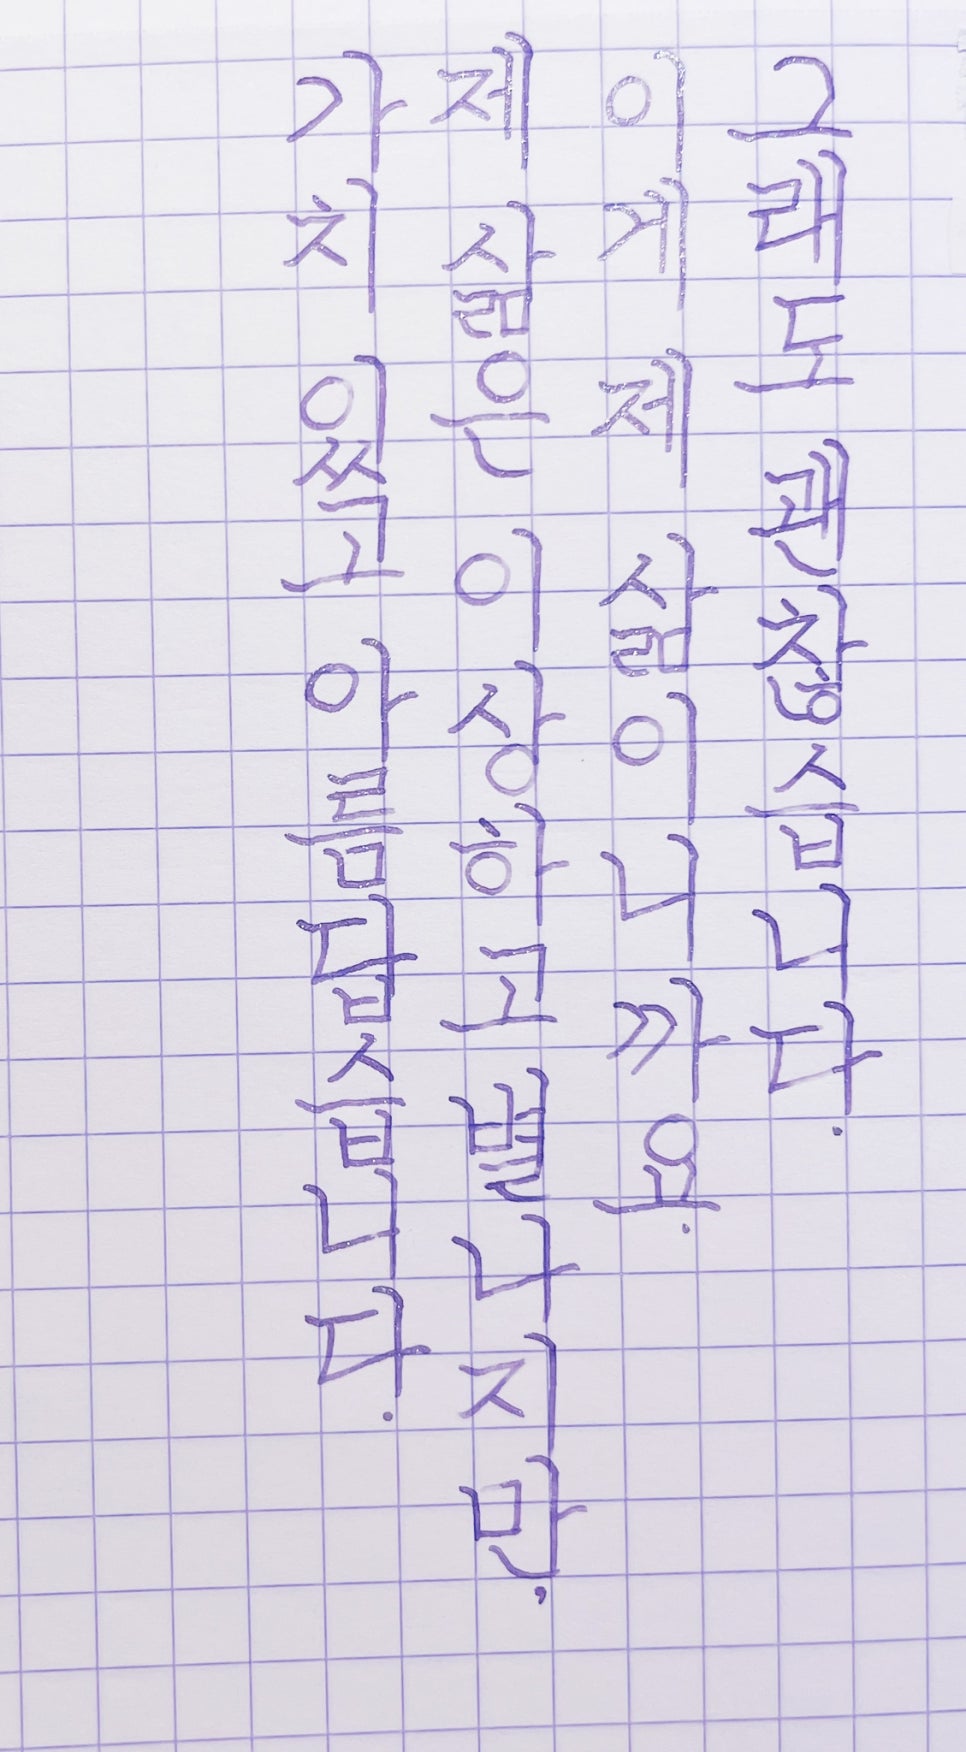 그래도 괜찮습니다.
이게 제 삶이니까요.
제 삶은 이상하고 별나지만,
가치 있고 아름답습니다.